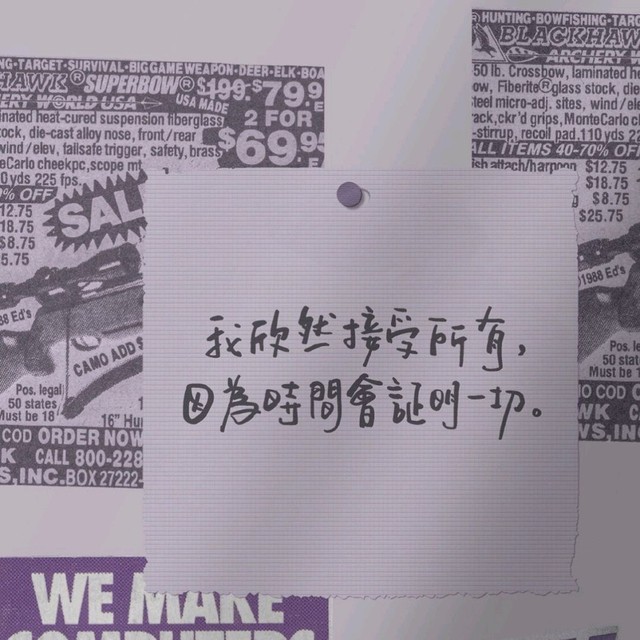 NG-TARGET-SURVIVAL-BIG GAME WEAPON-DEER-ELK-BOA
HAWK® SUPERBOW® $199. $79.9
ERY WORLD USA USA MADE 2 FOR
$69.95
inated heat-cured suspension fiberglass
tock, die-cast alloy nose, front/rear
wind / elev, failsafe trigger, safety, brass
teCarlo cheekpc, scope mt
0 yds 225 fps.
0% OFF
12.75
18.75
$8.75
5.75
SAL
88 Ed's
CAMO ADD $
Pos. legal
50 states
Must be 18
16" Hu
COD ORDER NOW
K CALL 800-228
S, INC. BOX 27222
HUNTING-BOWFISHING-TAR
BLACKHAW
ARCHERY
50 lb. Crossbow, laminated h
ow, Fiberite® glass stock, die
teel micro-adj. sites, wind / ele
ack, ckr'd grips, MonteCarlo ch
-stirrup, recoil pad. 110 yds 2
ALL ITEMS 40-70% OFF
sh attach/harpoon $12.75
$18.75
g $8.75
$25.75
1988 Ed's
Pos. lega
50 stat
Must be 1
O COD O
WK C
WS, IN
我欣然接受所有，
因為時間會証明一切。
WE MAKE
COMPUTERS